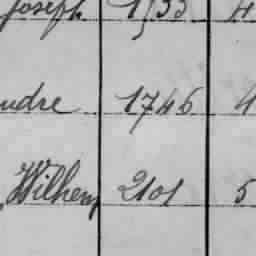 Joseph 1733 4
udre 1746 4
Wilhem 2101 5